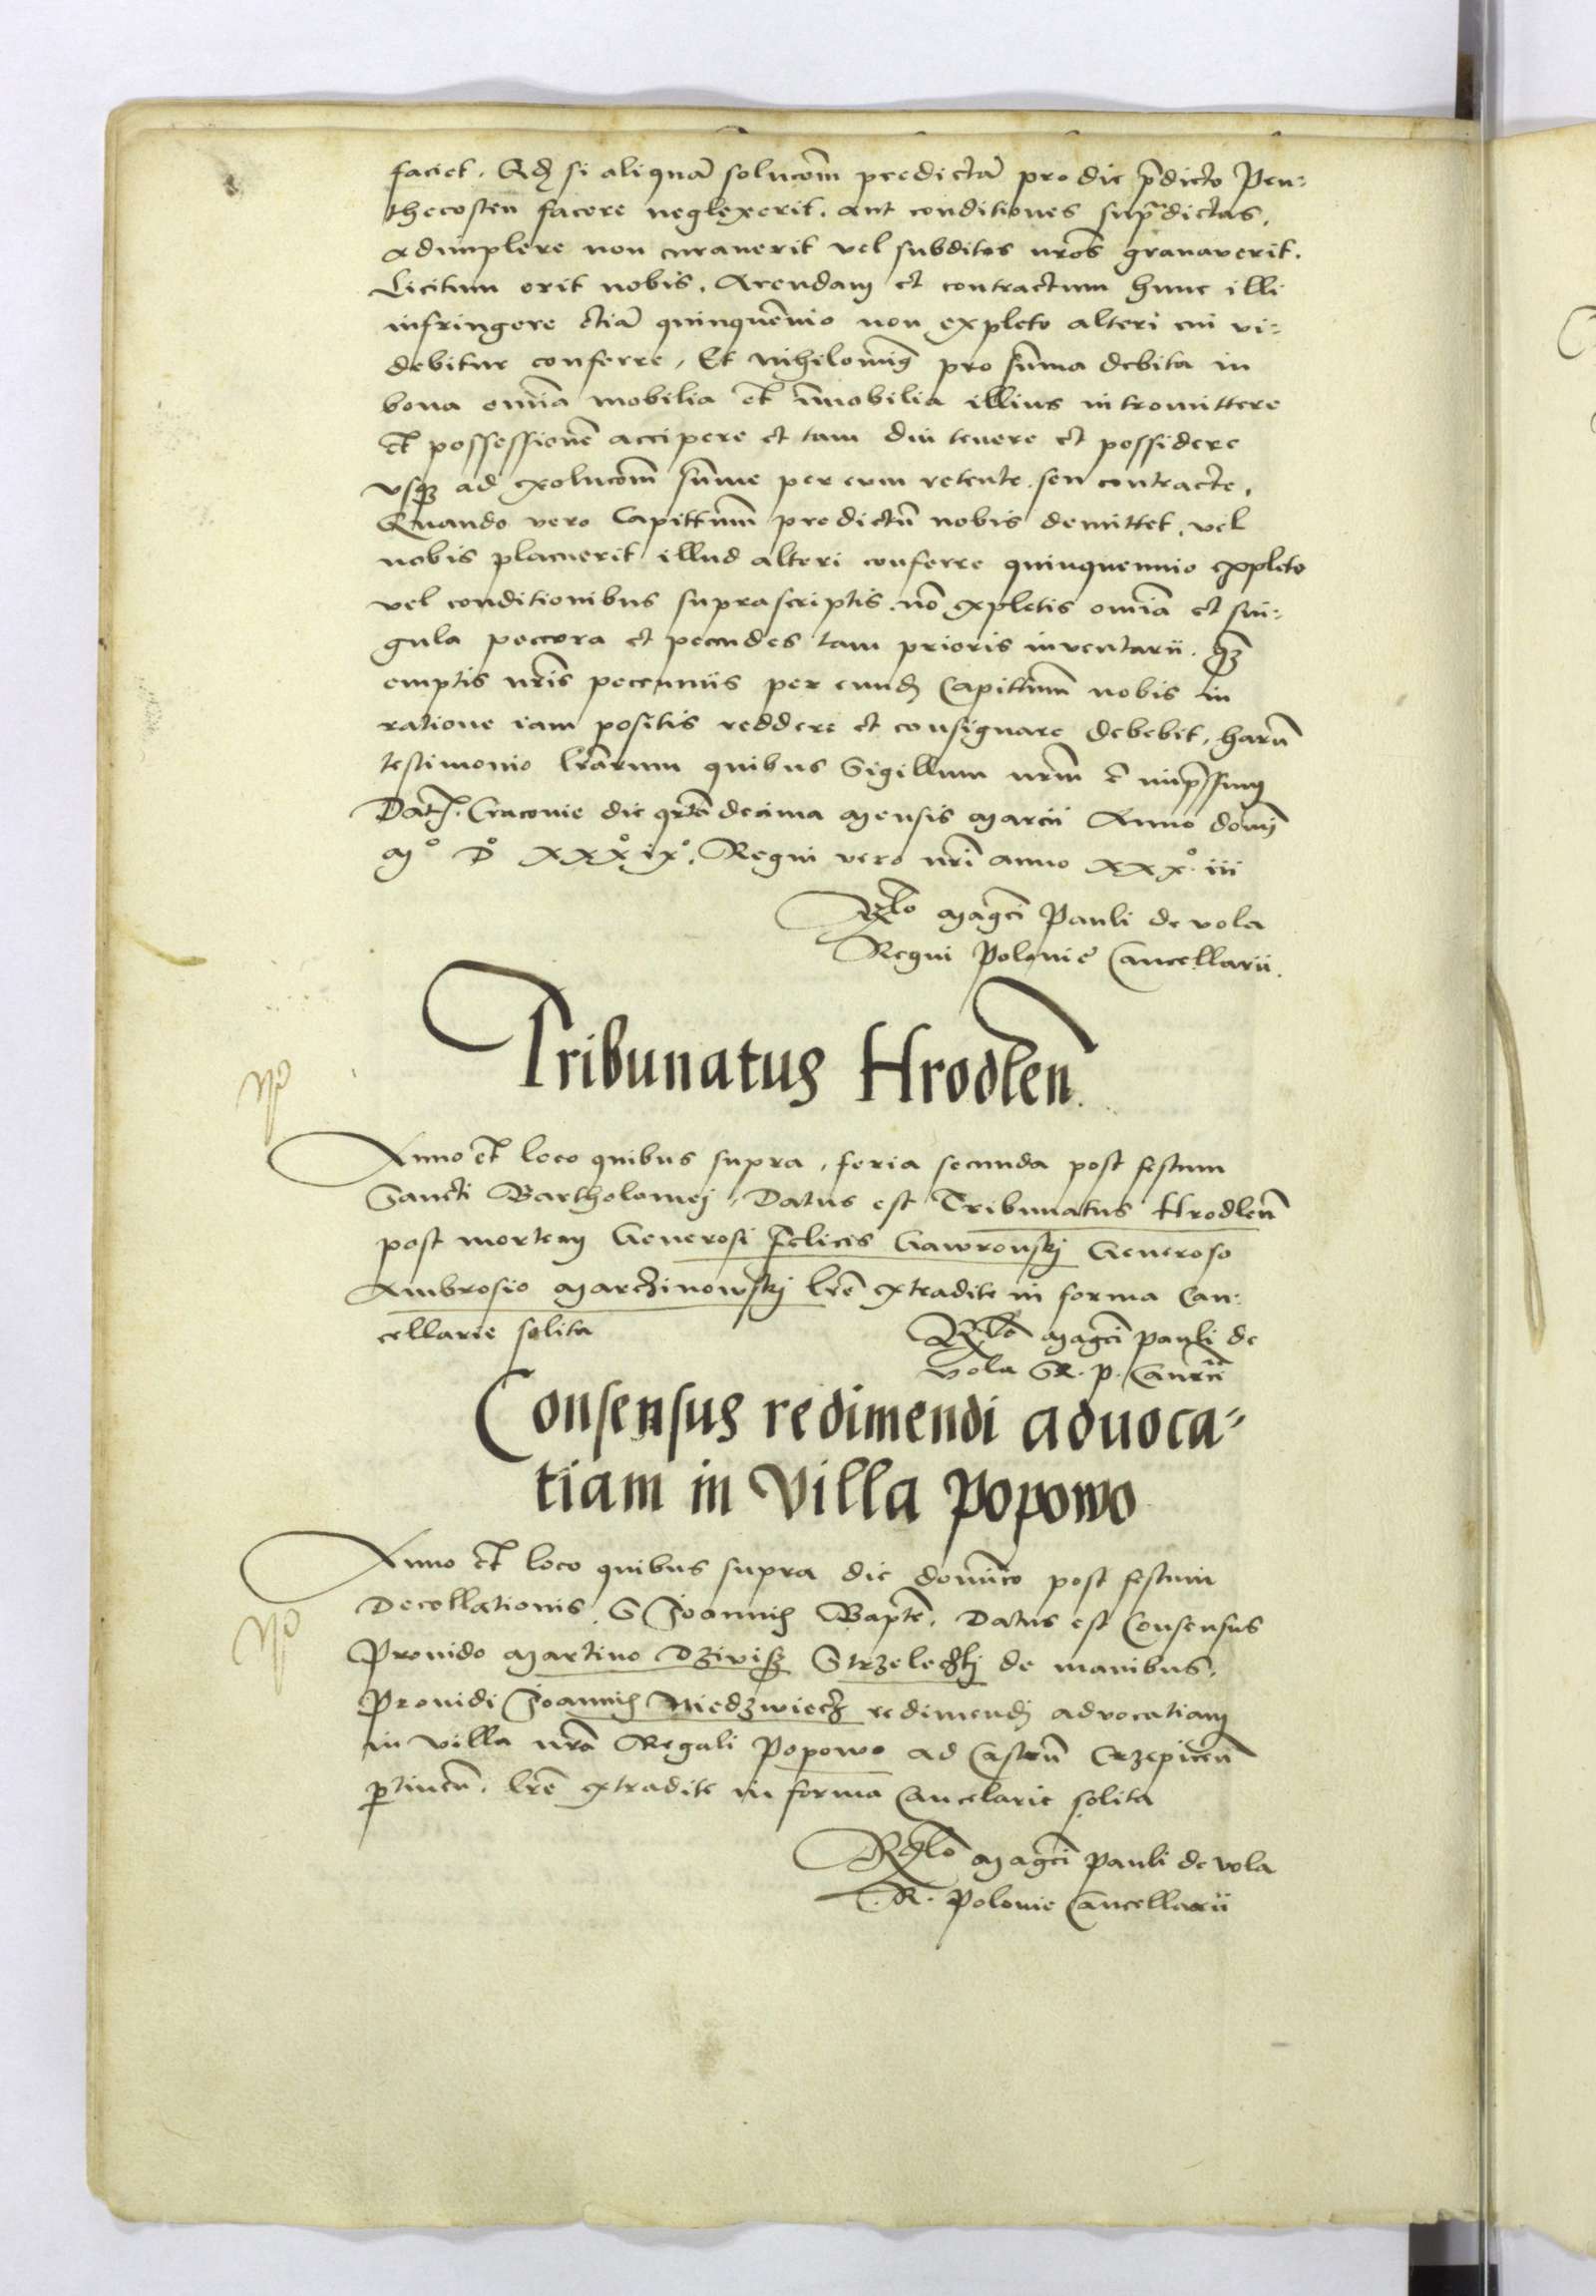 faciet. Qd si aliquā solucoīm predictā pro die p̄dicto Pen⸗
thecosten facere neglexerit. aut conditiones supradictas.
adimplere non curauerit vel subditos nr̄os grauauerit.
Licitum erit nobis. Arendam et contractum hunc illi
infringere etiā quinquēnio non expleto alteri cui vi⸗
debitur conferre. Et nihilomiꝰ pro sūma debita in
bona omīa mobilia et īmobilia illius intromittere
et possessionē accipere et tam diu tenere et possidere
vsqꝫ ad exolucoīm sūme per eum retente. seu contracte.
Quando vero Capitt̄um predictū nobis demittet. vel
nobis placuerit illud alteri conferre quinquennio expleto
vel conditionibus suprascriptis nō expletis omīa et sin⸗
gula peccora et pecudes tam prioris inventarii. qꝫ
emptis nr̄is peccuniis per eund Capitt̄um nobis in
ratione iam positis reddere et consignare debebit. harū
testimonio lr̄arum quibus Sigillum nr̄m ē imp̄ssum
Dat. Cracouie die qrtā decima mensis marcii Anno domī
Mº Dº xxxºixº. Regni vero nr̄i anno xxxº. iii
Rlō maḡci Pauli de vola
Regni Polonie Cancellarii.
Tribunatus Hrodlen̄.
Anno et loco quibus supra, feria secunda post festum
Sancti Bartholomej. Datus est Tribunatus Hrodlen̄
post mortem Generosi Felicis Gawronskj Generoso
Ambrosio Marczinowskj lr̄e extradite in forma Can⸗
cellarie solita
Rlō maḡci pauli de
vola R. P. Canc̄rii
Consensus redimendi aduoca⸗
tiam in Villa Popowo
Anno et loco quibus supra die domīco post festum
Decollationis S Joannis Bapt̄e. Datus est Consensus
Prouido Martino Dziwisz Strzeleczkj de manibus.
Prouidi Joannis Niedzwiecz redimendj advocatiam
in villa nr̄a Regali Popowo ad Castrū Crzepicen̄
ꝑtinen̄. lr̄e extradite in forma Cancelarie solita
Rlō maḡci Pauli de vola
R. Polonie Cancellarii